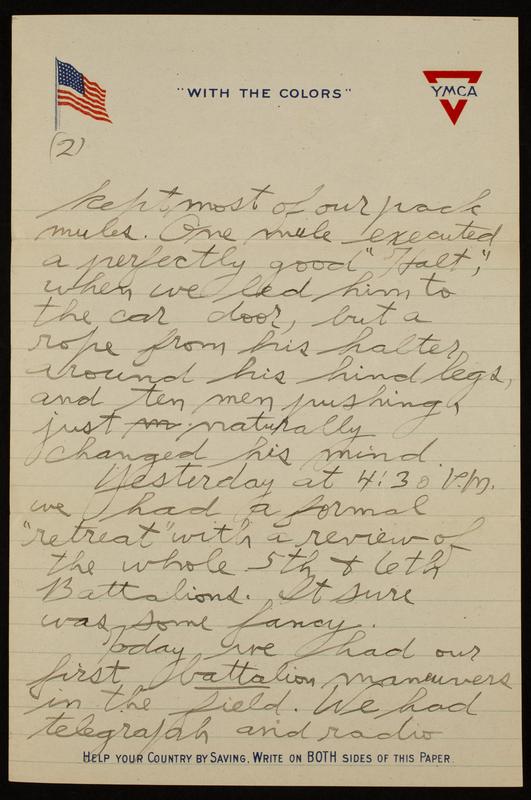 "WITH THE COLORS"
YMCA
(2)
kept most of our pack
mules. One mule executed
a perfectly good "Halt",
when we led him to
the car door, but a
rope from his halter
around his hind legs,
and ten men pushing,
just naturally
changed his mind
Yesterday at 4:30 P.M.
we had a formal
"retreat" with a review of
the whole 5th & 6th
Battalions. It sure
was some fancy.
Today we had our
first battalion maneuvers
in the field. We had
telegraph and radio
HELP YOUR COUNTRY BY SAVING. WRITE ON BOTH SIDES OF THIS PAPER.